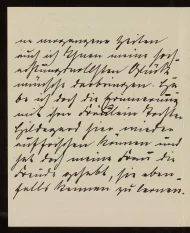 vergangene Zeiten
auch ich Ihnen meine hoch
achtungsvollsten Glück
wünsche darbringen. Ha
be ich doch die Erinnerung
mit Ihrer Fräulein Tochter
Hildegard hier wieder
auffrischen können und
hat doch meine Frau die
Freude gehabt, sie eben-
falls kennen zu lernen.